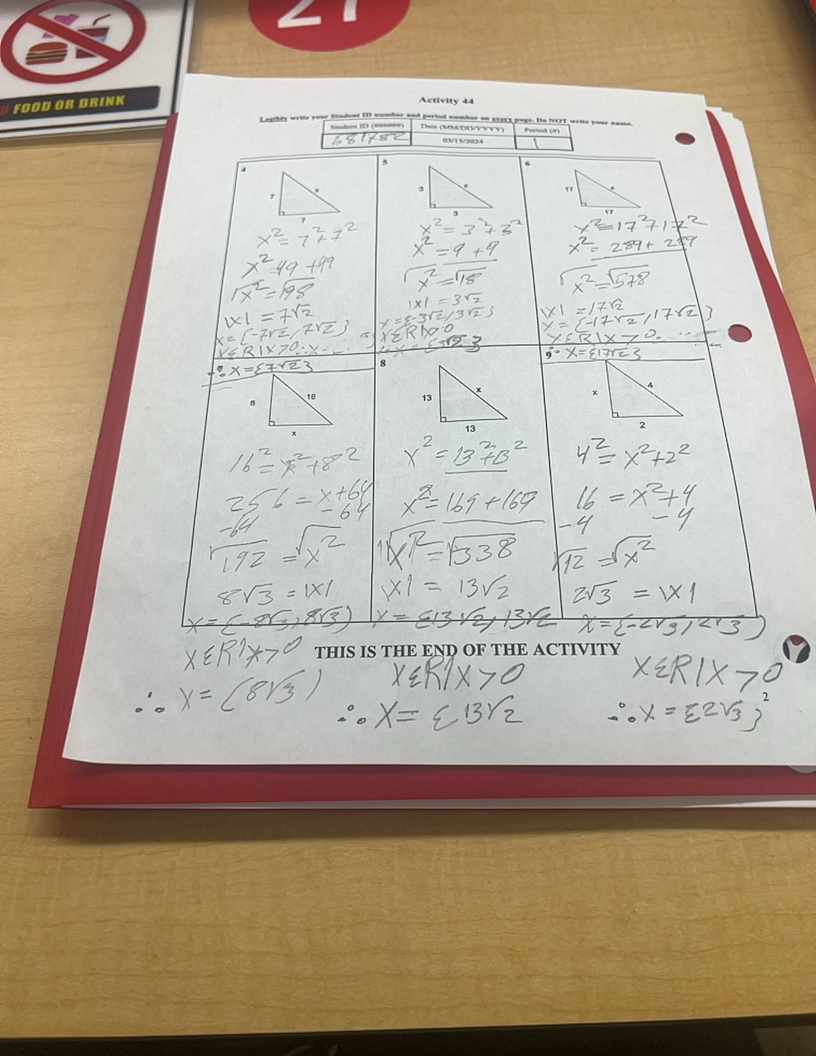 27
FOOD OR DRINK
Activity 44
Legibly write your Student ID number and period number on every page. Do NOT write your name.
Student ID (######) Date (MM/DD/YYYY) Period (#)
681782 03/15/2024 1
4
7
x
7
x²=7²+7²
x²=49+49
√x²=√98
|x|=7√2
x={-7√2,7√2}
xεR|x>0
∴x={7√2}
5
3
x
3
x²=3²+3²
x²=9+9
√x²=√18
|x|=3√2
x={-3√2,3√2}
xεR|x>0
6
17
x
17
x²=17²+17²
x²=289+289
√x²=√578
|x|=17√2
x={-17√2,17√2}
xεR|x>0
∴x={17√2}
8
16
x
16²=x²+8²
256=x+64
-64 -64
√192=√x²
8√3=|x|
x={-8√3,8√3}
xεR|x>0
∴x=(8√3)
8
13
x
13
x²=13²+13²
x²=169+169
√x²=√338
|x|=13√2
x={13√2,13√2
xεR|x>0
∴x={13√2
9
x
4
2
4²=x²+2²
16=x²+4
-4 -4
√12=√x²
2√3=|x|
x={-2√3,2√3}
xεR|x>0
∴x={2√3}
THIS IS THE END OF THE ACTIVITY
2